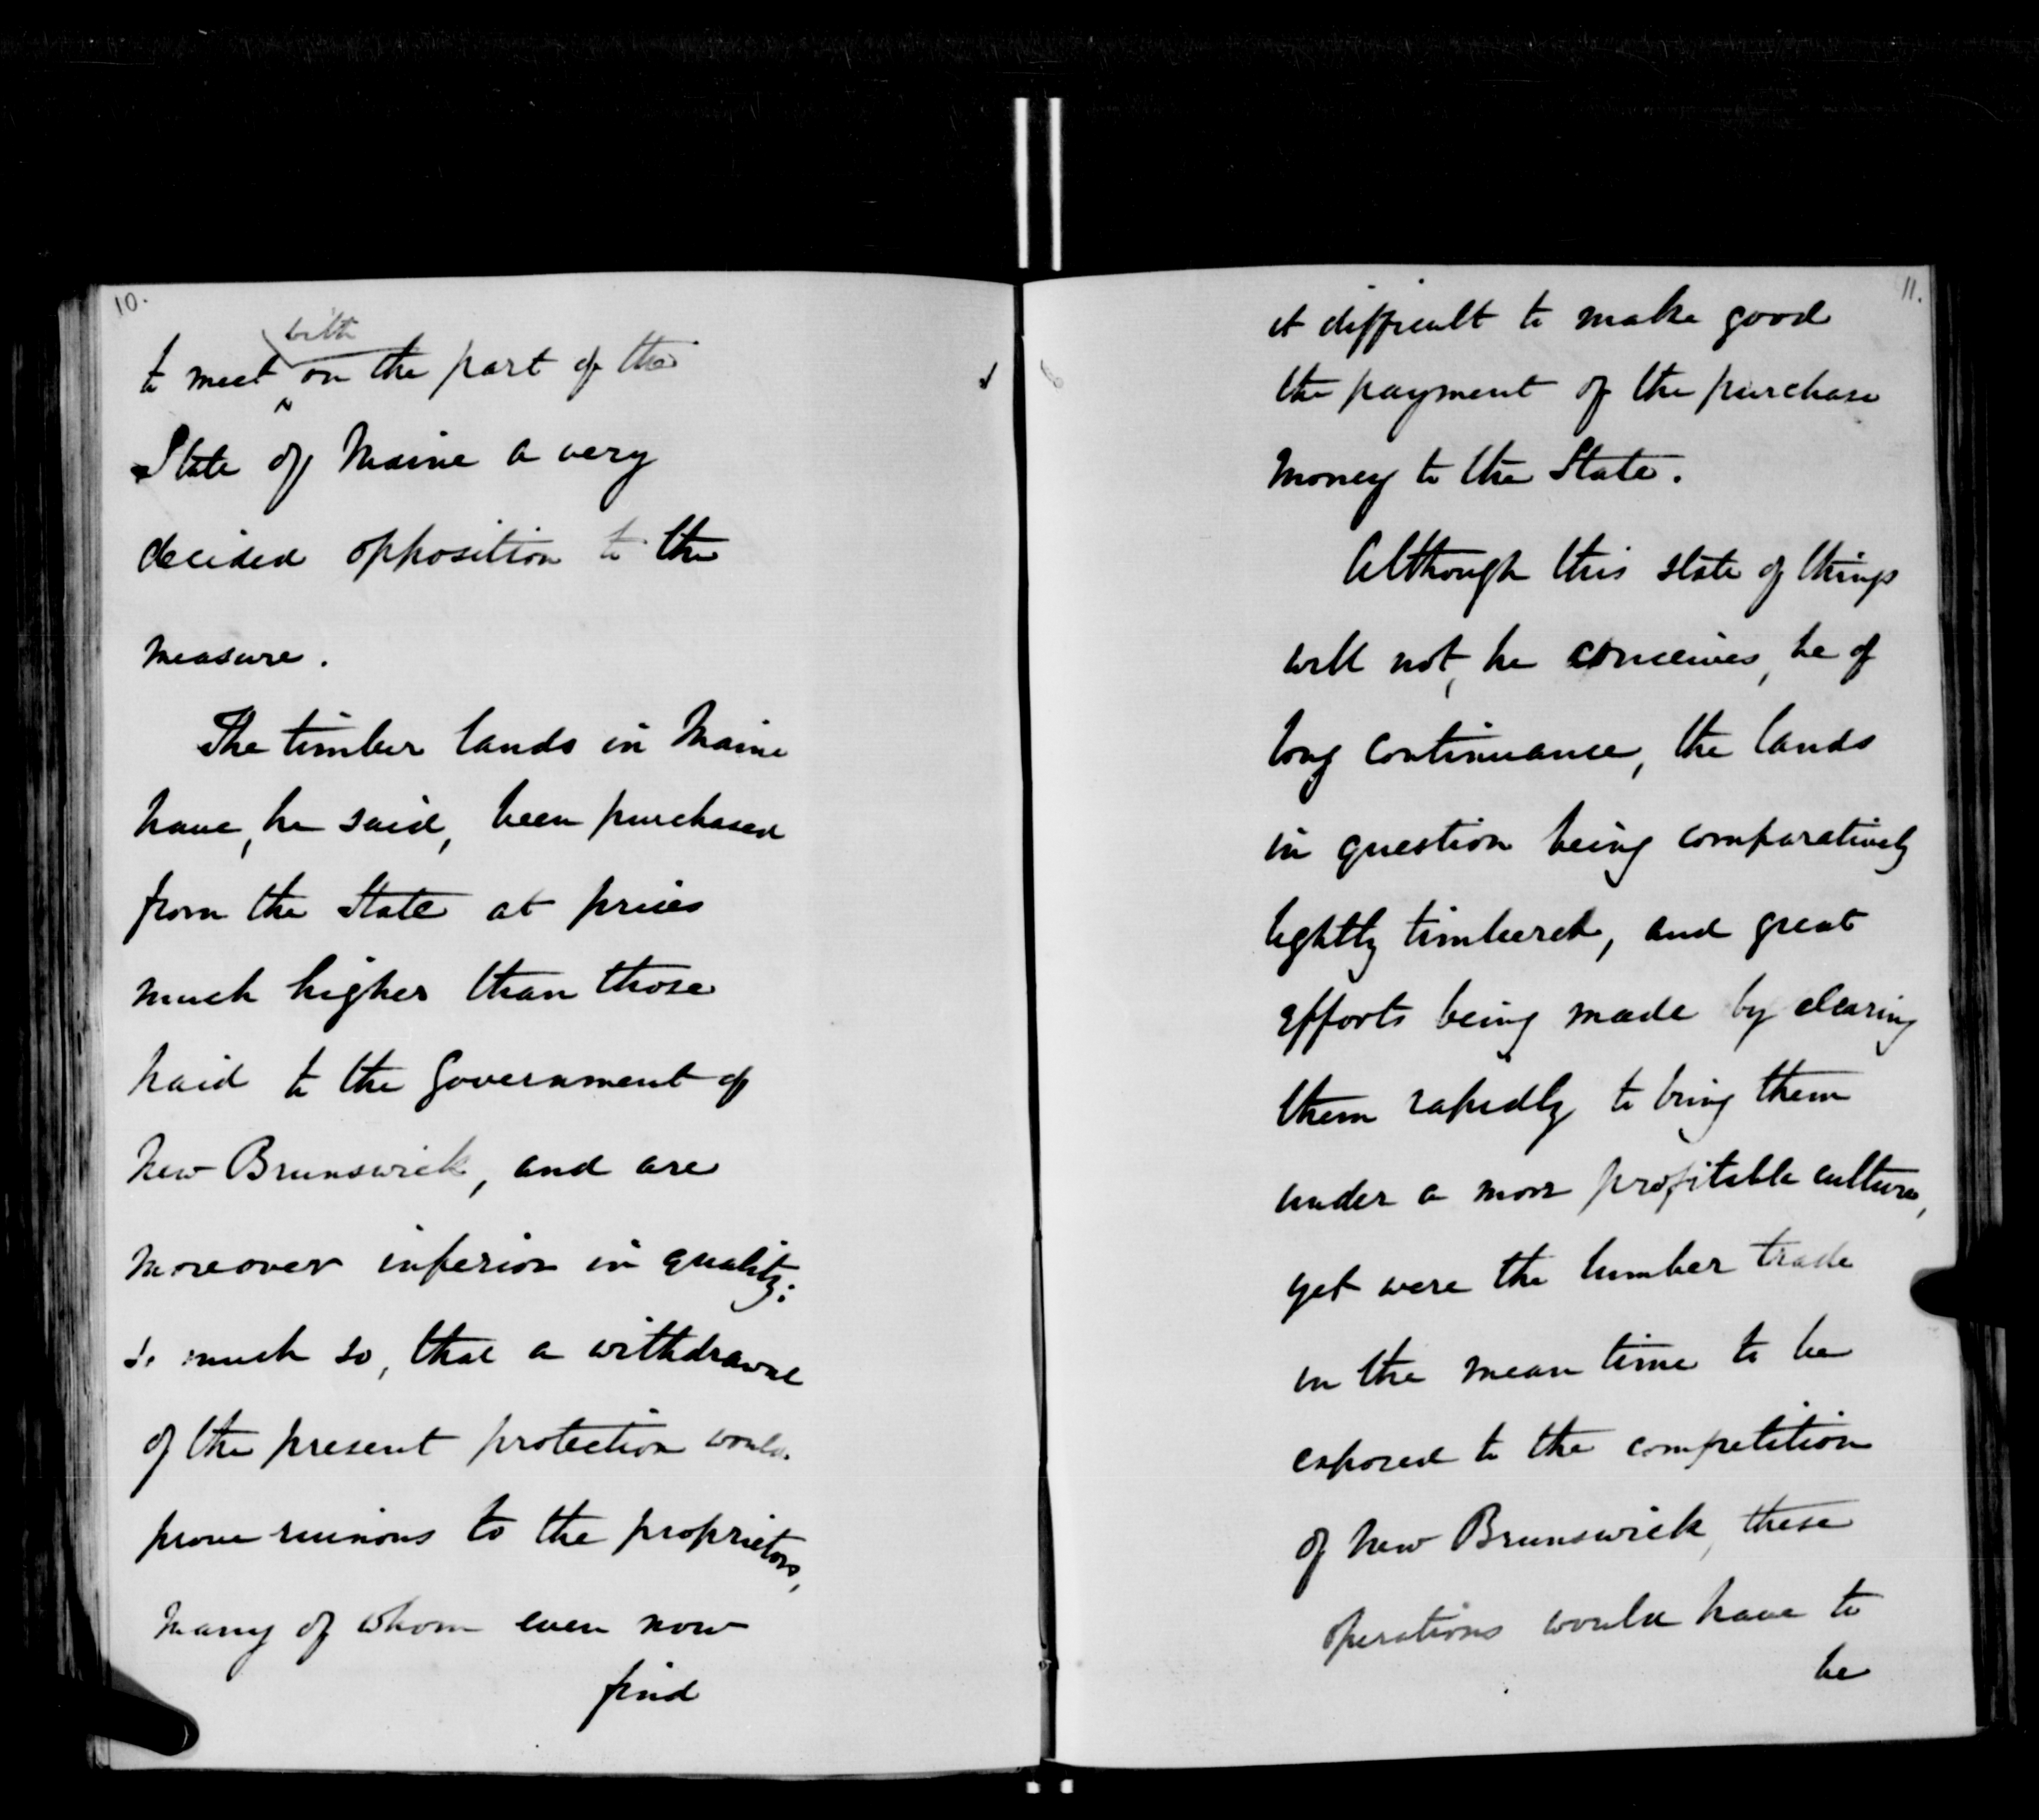 10.
with
to meet on the part of the
State of Maine a very
decided opposition to the
measure.
The timber lands in Maine
have, he said, been purchased
from the State at prices
much higher than those
paid to the Government of
New Brunswick, and are
moreover inferior in quality:
so much so, that a withdrawal
of the present protection would
prove ruinous to the proprietors,
many of whom even now
find
11.
it difficult to make good
the payment of the purchase
money to the State.
Although this state of things
will not, he conceives, be of
long continuance, the lands
in question being comparatively
lightly timbered, and great
efforts being made by clearing
them rapidly to bring them
under a more profitable culture,
yet were the lumber trade
in the mean time to be
exposed to the competition
of New Brunswick, these
operations would have to
be